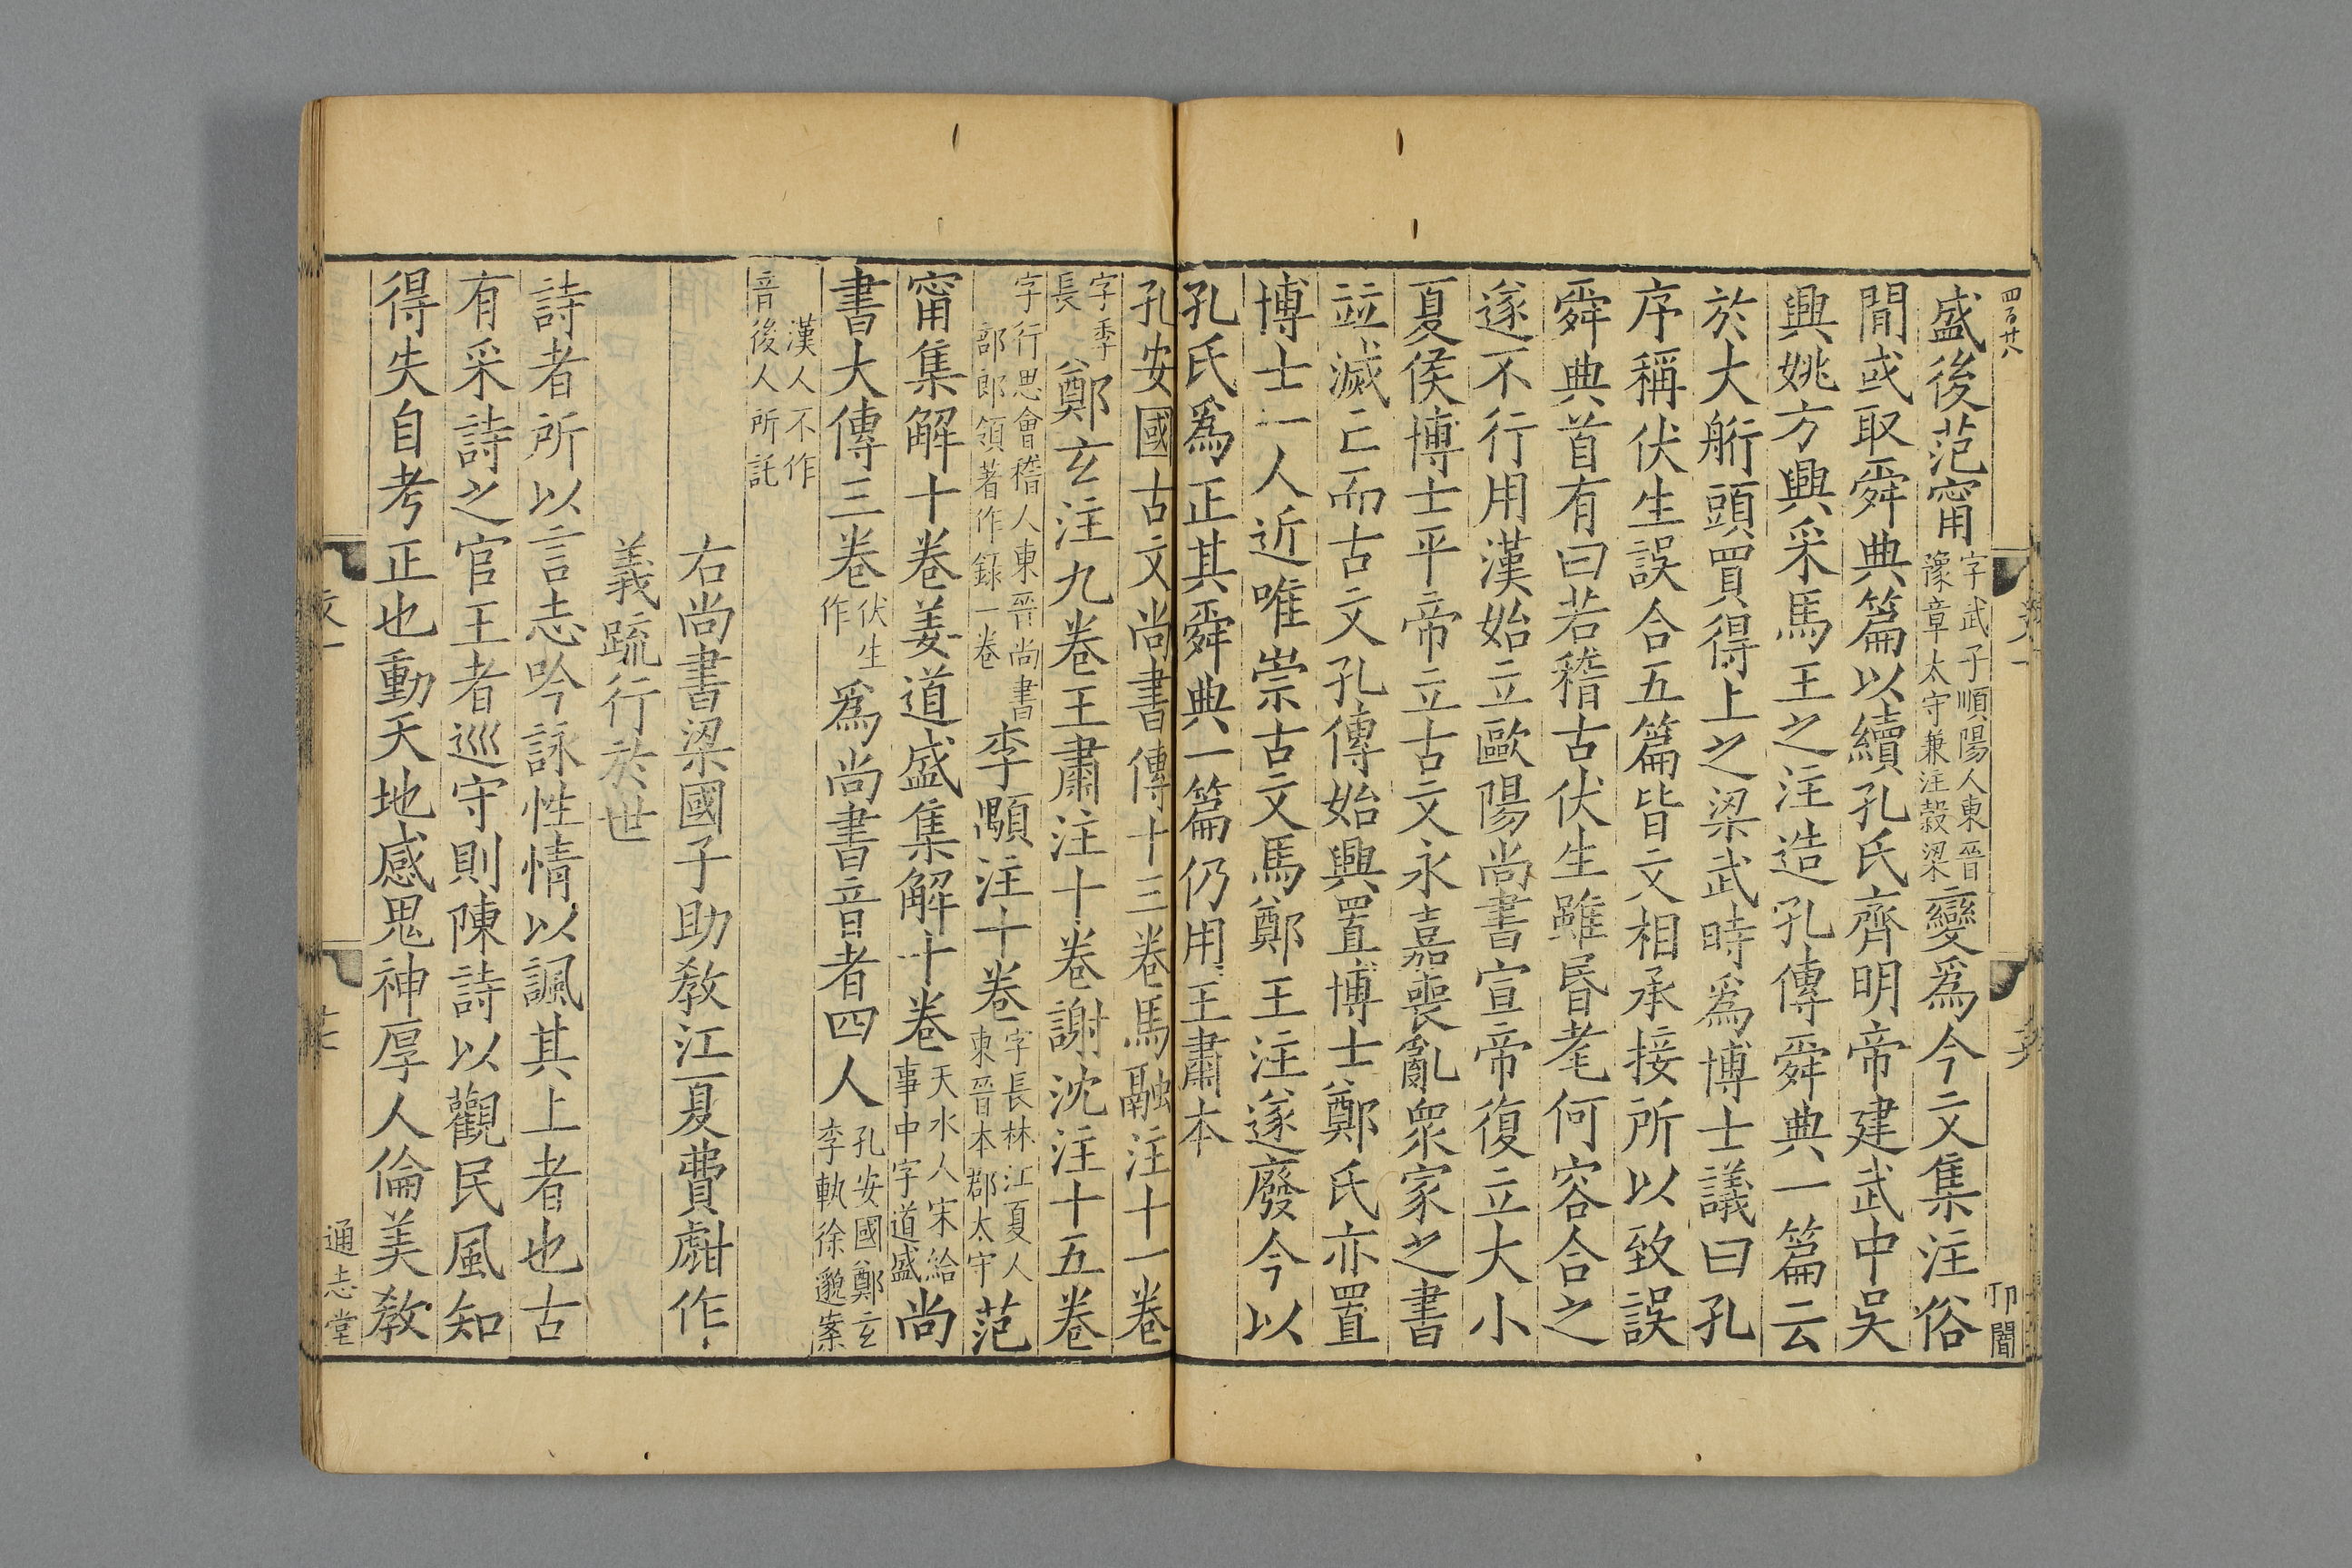 四百廿八
卬闇
盛後范甯字武子順陽人東晉豫章太守兼注穀梁變爲今文集注俗
閒或取舜典篇以續孔氏齊明帝建武中吳
興姚方興采馬王之注造孔傳舜典一篇云
於大𦨵頭買得上之梁武時爲博士議曰孔
序稱伏生誤合五篇皆文相承接所以致誤
舜典首有曰若稽古伏生雖昏耄何容合之
遂不行用漢始立歐陽尚書宣帝復立大小
夏侯博士平帝立古文永嘉喪亂衆家之書
竝滅亡而古文孔傳始興置博士鄭氏亦置
博士一人近唯崇古文馬鄭王注遂廢今以
孔氏爲正其舜典一篇仍用王肅本
孔安國古文尚書傳十三卷馬融注十一卷
字季長鄭玄注九卷王肅注十卷謝沈注十五卷
字行思會稽人東晉尚書部郎領著作錄一卷李顒注十卷字長林江夏人東晉本郡太守范
甯集解十卷姜道盛集解十卷天水人宋給事中字道盛尚
書大傳三卷伏生作爲尚書音者四人孔安國鄭玄李軌徐邈案
漢人不作音後人所託
右尚書梁國子助教江夏費甝作
義疏行於世
詩者所以言志吟詠性情以諷其上者也古
有采詩之官王者巡守則陳詩以觀民風知
得失自考正也動天地感鬼神厚人倫美教
通志堂